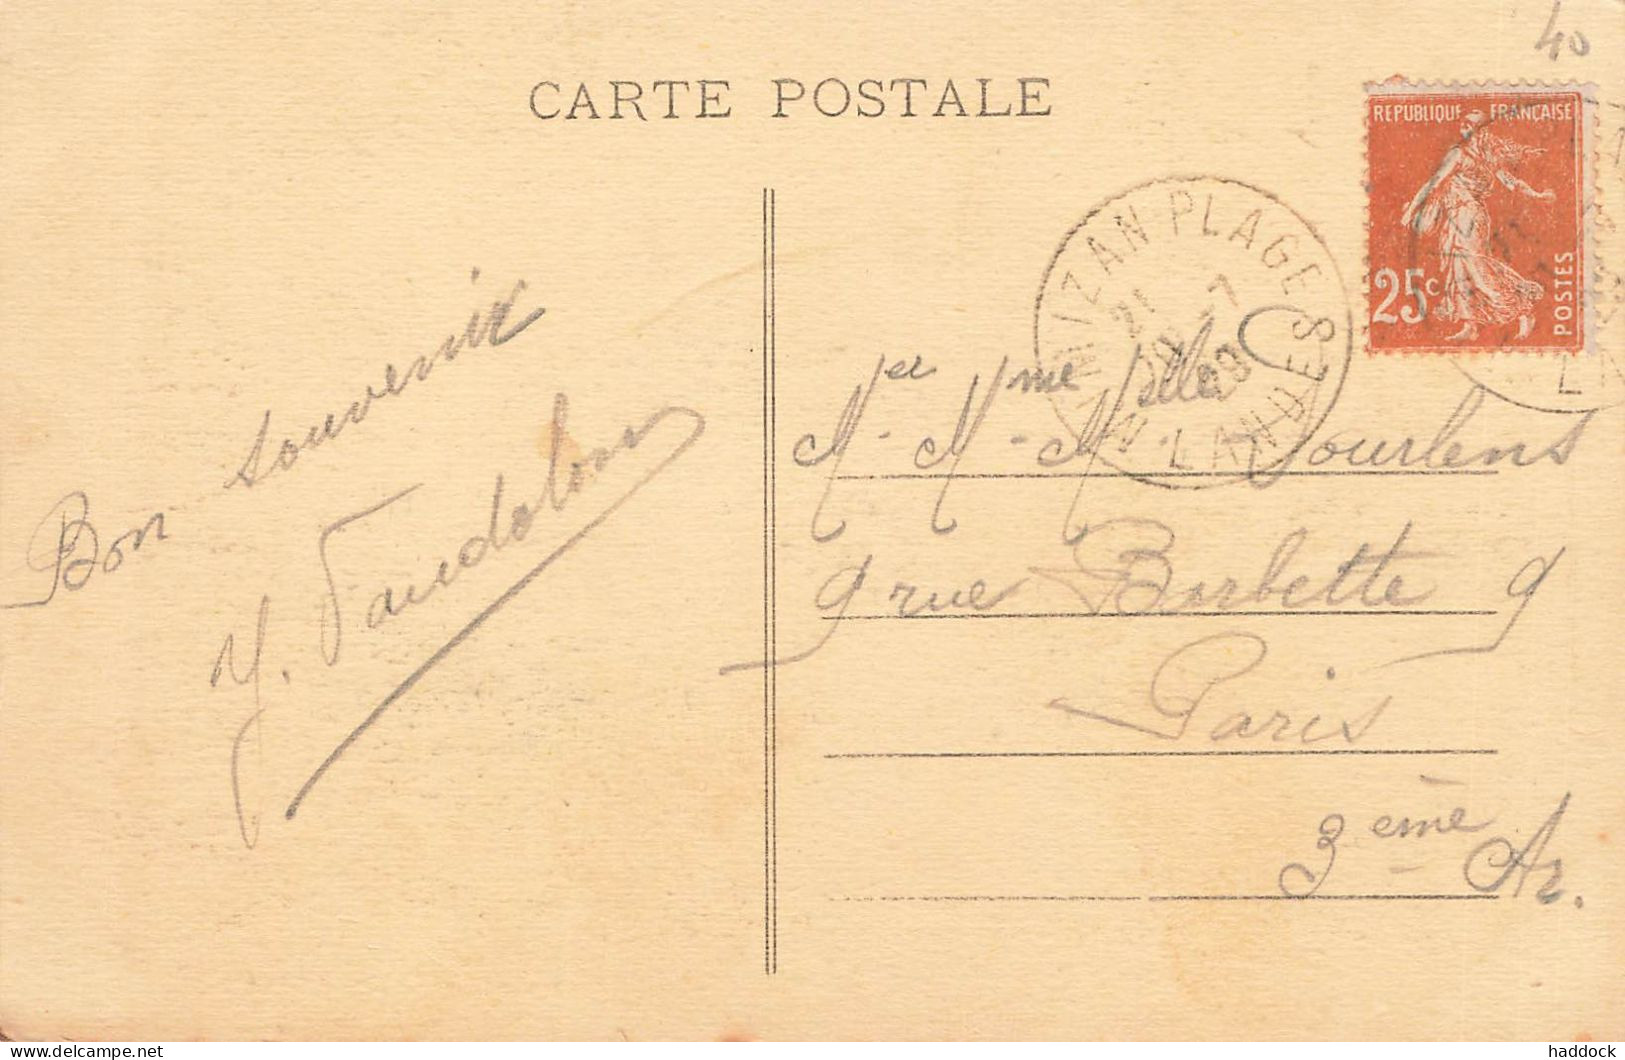 40
CARTE POSTALE
REPUBLIQUE FRANÇAISE
25c
POSTES
MIMIZAN PLAGE
21 - 7
29
LANDES
Bon souvenir
Mer Mme Melle
9 rue Barbette 9
Paris
3ème Ar.
delcampe.net
haddock